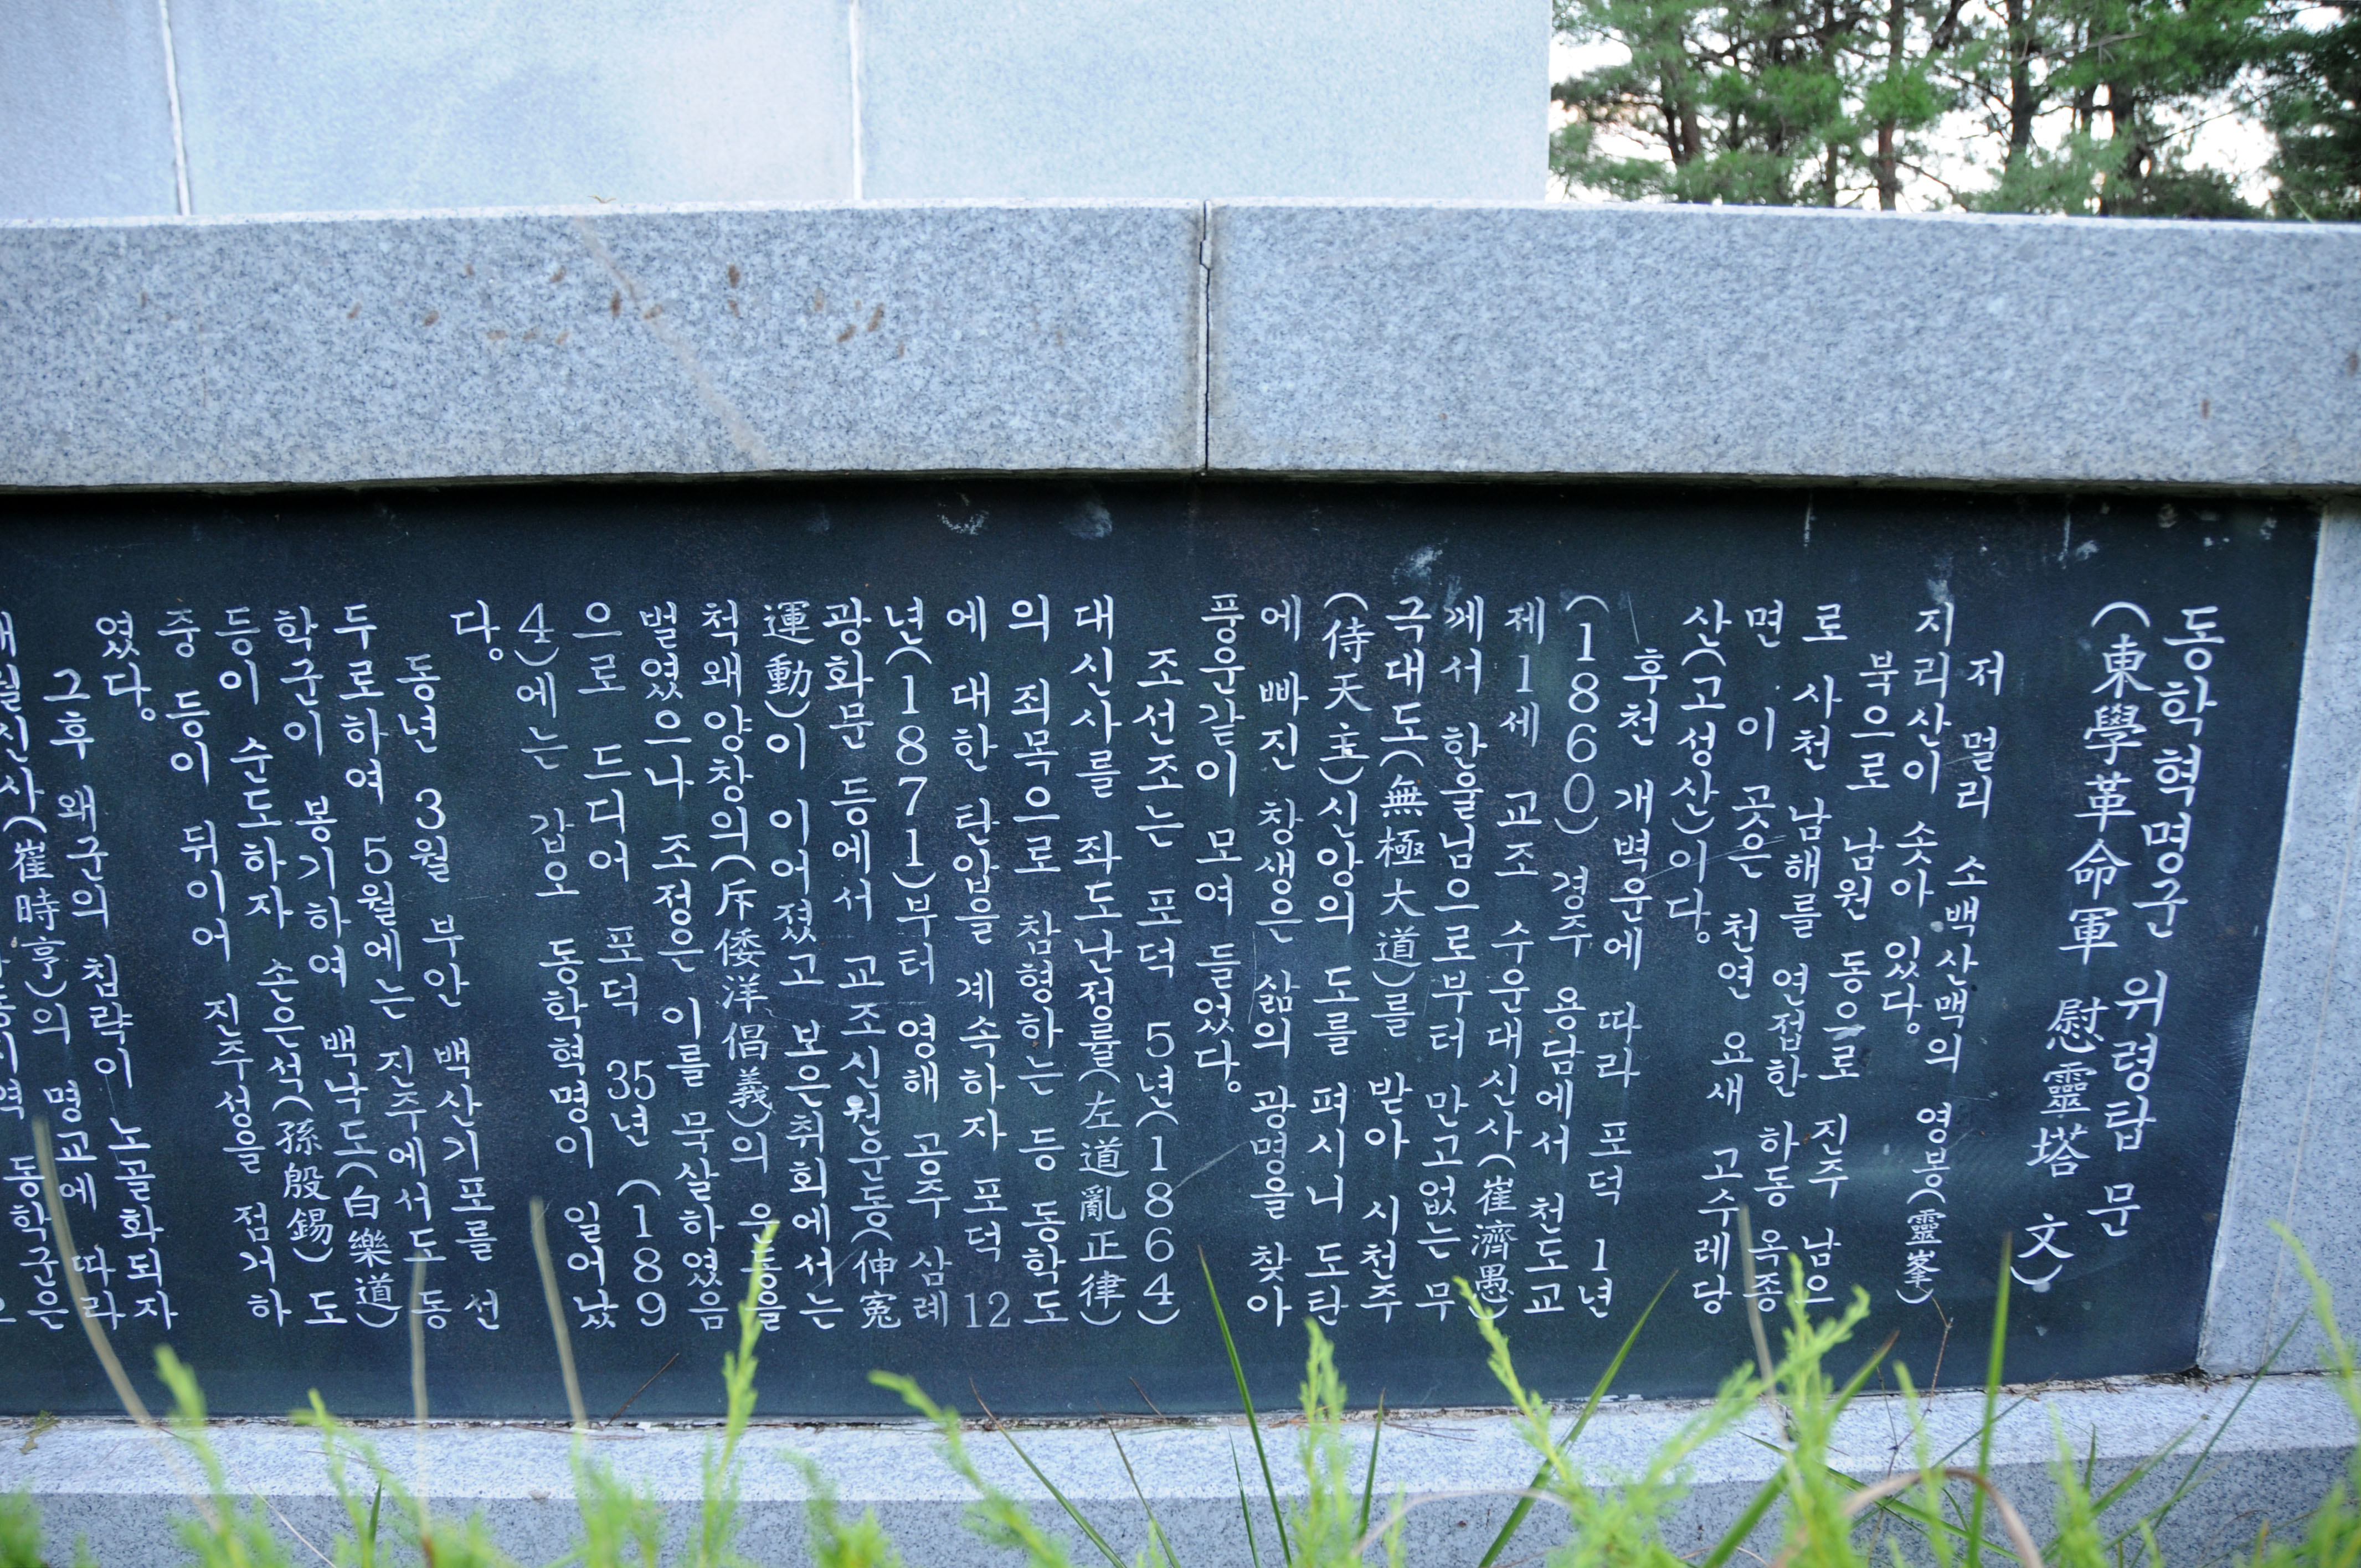 동학혁명군 위령탑 문
(東學革命軍 慰靈塔 文)
저 멀리 소백산맥의 영봉(靈峯)
지리산이 솟아 있다.
북으로 남원 동으로 진주 남으
로 사천 남해를 연접한 하동 옥종
면 이 곳은 천연 요새 고수레당
산(고성산)이다.
후천 개벽운에 따라 포덕 1년
(1860) 경주 용담에서 천도교
제1세 교조 수운대신사(崔濟愚)
께서 한울님으로부터 만고없는 무
극대도(無極大道)를 받아 시천주
(侍天主)신앙의 도를 펴시니 도탄
에 빠진 창생은 삶의 광명을 찾아
풍운같이 모여 들었다.
조선조는 포덕 5년(1864)
대신사를 좌도난정률(左道亂正律)
의 죄목으로 참형하는 등 동학도
에 대한 탄압을 계속하자 포덕 12
년(1871)부터 영해 공주 삼례
광화문 등에서 교조신원운동(伸寃
運動)이 이어졌고 보은취회에서는
척왜양창의(斥倭洋倡義)의 운동을
벌였으나 조정은 이를 묵살하였음
으로 드디어 포덕 35년 (189
4)에는 갑오 동학혁명이 일어났
다.
동년 3월 부안 백산기포를 선
두로하여 5월에는 진주에서도 동
학군이 봉기하여 백낙도(白樂道)
등이 순도하자 손은석(孫殷錫) 도
중 등이 뒤이어 진주성을 점거하
였다.
그후 왜군의 침략이 노골화되자
해월신사(崔時亨)의 명교에 따라
동학군은